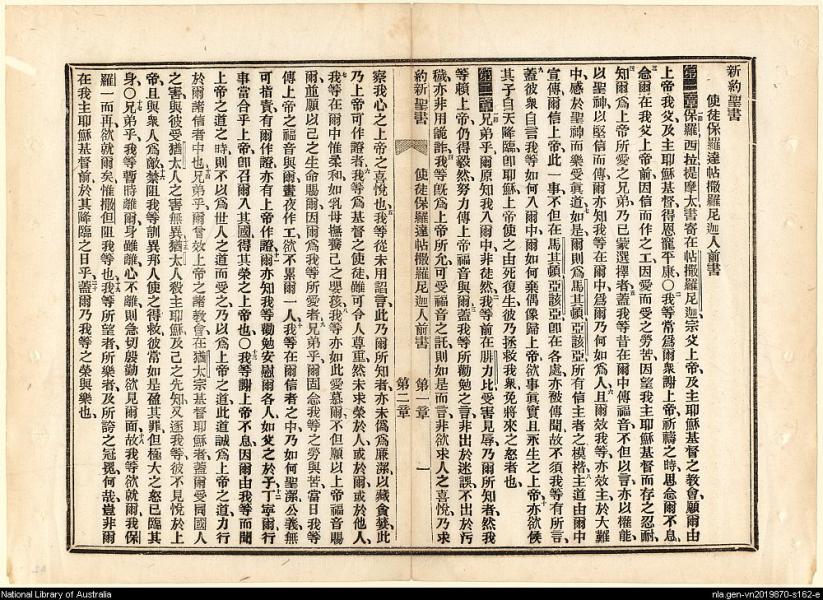 新約聖書
使徒保羅達帖撒羅尼迦人前書
第一章保羅西拉提摩太書寄在帖撒羅尼迦宗父上帝及主耶穌基督之教會願爾由
上帝我父及主耶穌基督得恩寵平康〇我等常爲爾衆謝上帝祈禱之時思念爾不息
念爾在我父上帝前因信而作之工因愛而受之勞苦因望我主耶穌基督而存之忍耐
知爾爲上帝所愛之兄弟乃已蒙選擇者蓋我等昔在爾中傳福音不但以言亦以權能
以聖神以堅信而傳爾亦知我等在爾中爲爾乃何如爲人且爾效我等亦效主於大難
中感於聖神而樂受眞道如是爾則爲馬其頓亞該亞所有信主者之模楷主道由爾中
宣傳爾信上帝此一事不但在馬其頓亞該亞卽在各處亦被傳聞故不須我等有所言
蓋彼衆自言我等如何入爾中爾如何棄偶像歸上帝欲事眞實且永生之上帝亦欲俟
其子自天降臨卽耶穌上帝使之由死復生彼乃拯救我衆免將來之怒者也
第二章兄弟乎爾原知我入爾中非徒然我等前在腓立比受害見辱乃爾所知者然我
等賴上帝仍得毅然努力傳上帝福音與爾蓋我等所勸勉之言非出於迷誤不出於污
穢亦非用詭詐我等旣爲上帝所允可受福音之託則如是而言非欲求人之喜悅乃求
約新聖書
使徒保羅達帖撒羅尼迦人前書 第一章 一
第二章
察我心之上帝之喜悅也我等從未用諂言此乃爾所知者亦未僞爲廉潔以藏貪婪此
乃上帝可作證者我等爲基督之使徒雖可令人尊重然未求榮於人或於爾或於他人
我等在爾中惟柔和如乳母撫養己之嬰孩我等亦如此愛慕爾不但願以上帝福音賜
爾並願以己之生命賜爾因爾爲我等所愛者兄弟乎爾固念我等之勞與苦當日我等
傳上帝之福音與爾晝夜作工欲不累爾一人我等在爾信者之中乃如何聖潔公義無
可指責有爾作證亦有上帝作證爾亦知我等勸勉安慰爾各人如父之於子丁寧爾行
事當合乎上帝卽召爾入其國得其榮之上帝也〇我等謝上帝不息因爾由我等而聞
上帝之道之時則不以爲世人之道而受之乃以爲上帝之道此道誠爲上帝之道力行
於爾諸信者中也兄弟乎爾曾效上帝之諸教會在猶太宗基督耶穌者蓋爾受同國人
之害與彼受猶太人之害無異猶太人殺主耶穌及己之先知又逐我等彼不見悅於上
帝且與衆人爲敵禁阻我等訓異邦人使之得救彼常如是盈其罪但極大之怒已臨其
身〇兄弟乎我等暫時離爾身雖離心不離則急切襲勤欲見爾面故我等欲就爾我保
羅一而再欲就爾矣惟撒但阻我等也我等所望者所樂者及所誇之冠冕何哉豈非爾
在我主耶穌基督前於其降臨之日乎蓋爾乃我等之榮與樂也
National Library of Australia
nla.gen-vn2019870-s162-e